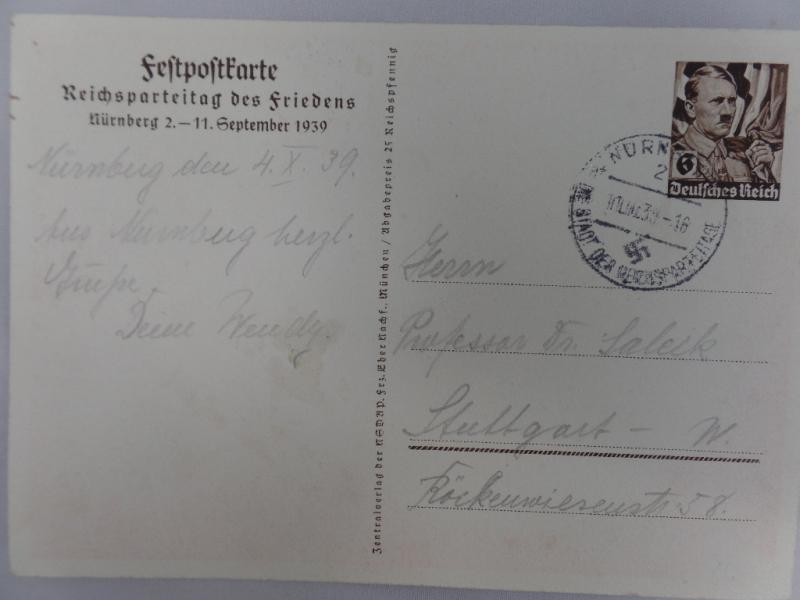 Festpostkarte
Reichsparteitag des Friedens
Nürnberg 2.–11. September 1939
Nürnberg den 4.X.39.
Aus Nürnberg herzl.
Grüße
Deine
Zentralverlag der NSDAP. Frz. Eher Nachf., München / Abgabepreis 25 Reichspfennig
6
Deutsches Reich
NÜRN
2
DIE STADT DER REICHSPARTEITAGE
Herrn
Professor Dr.
Stuttgart – W.
58.